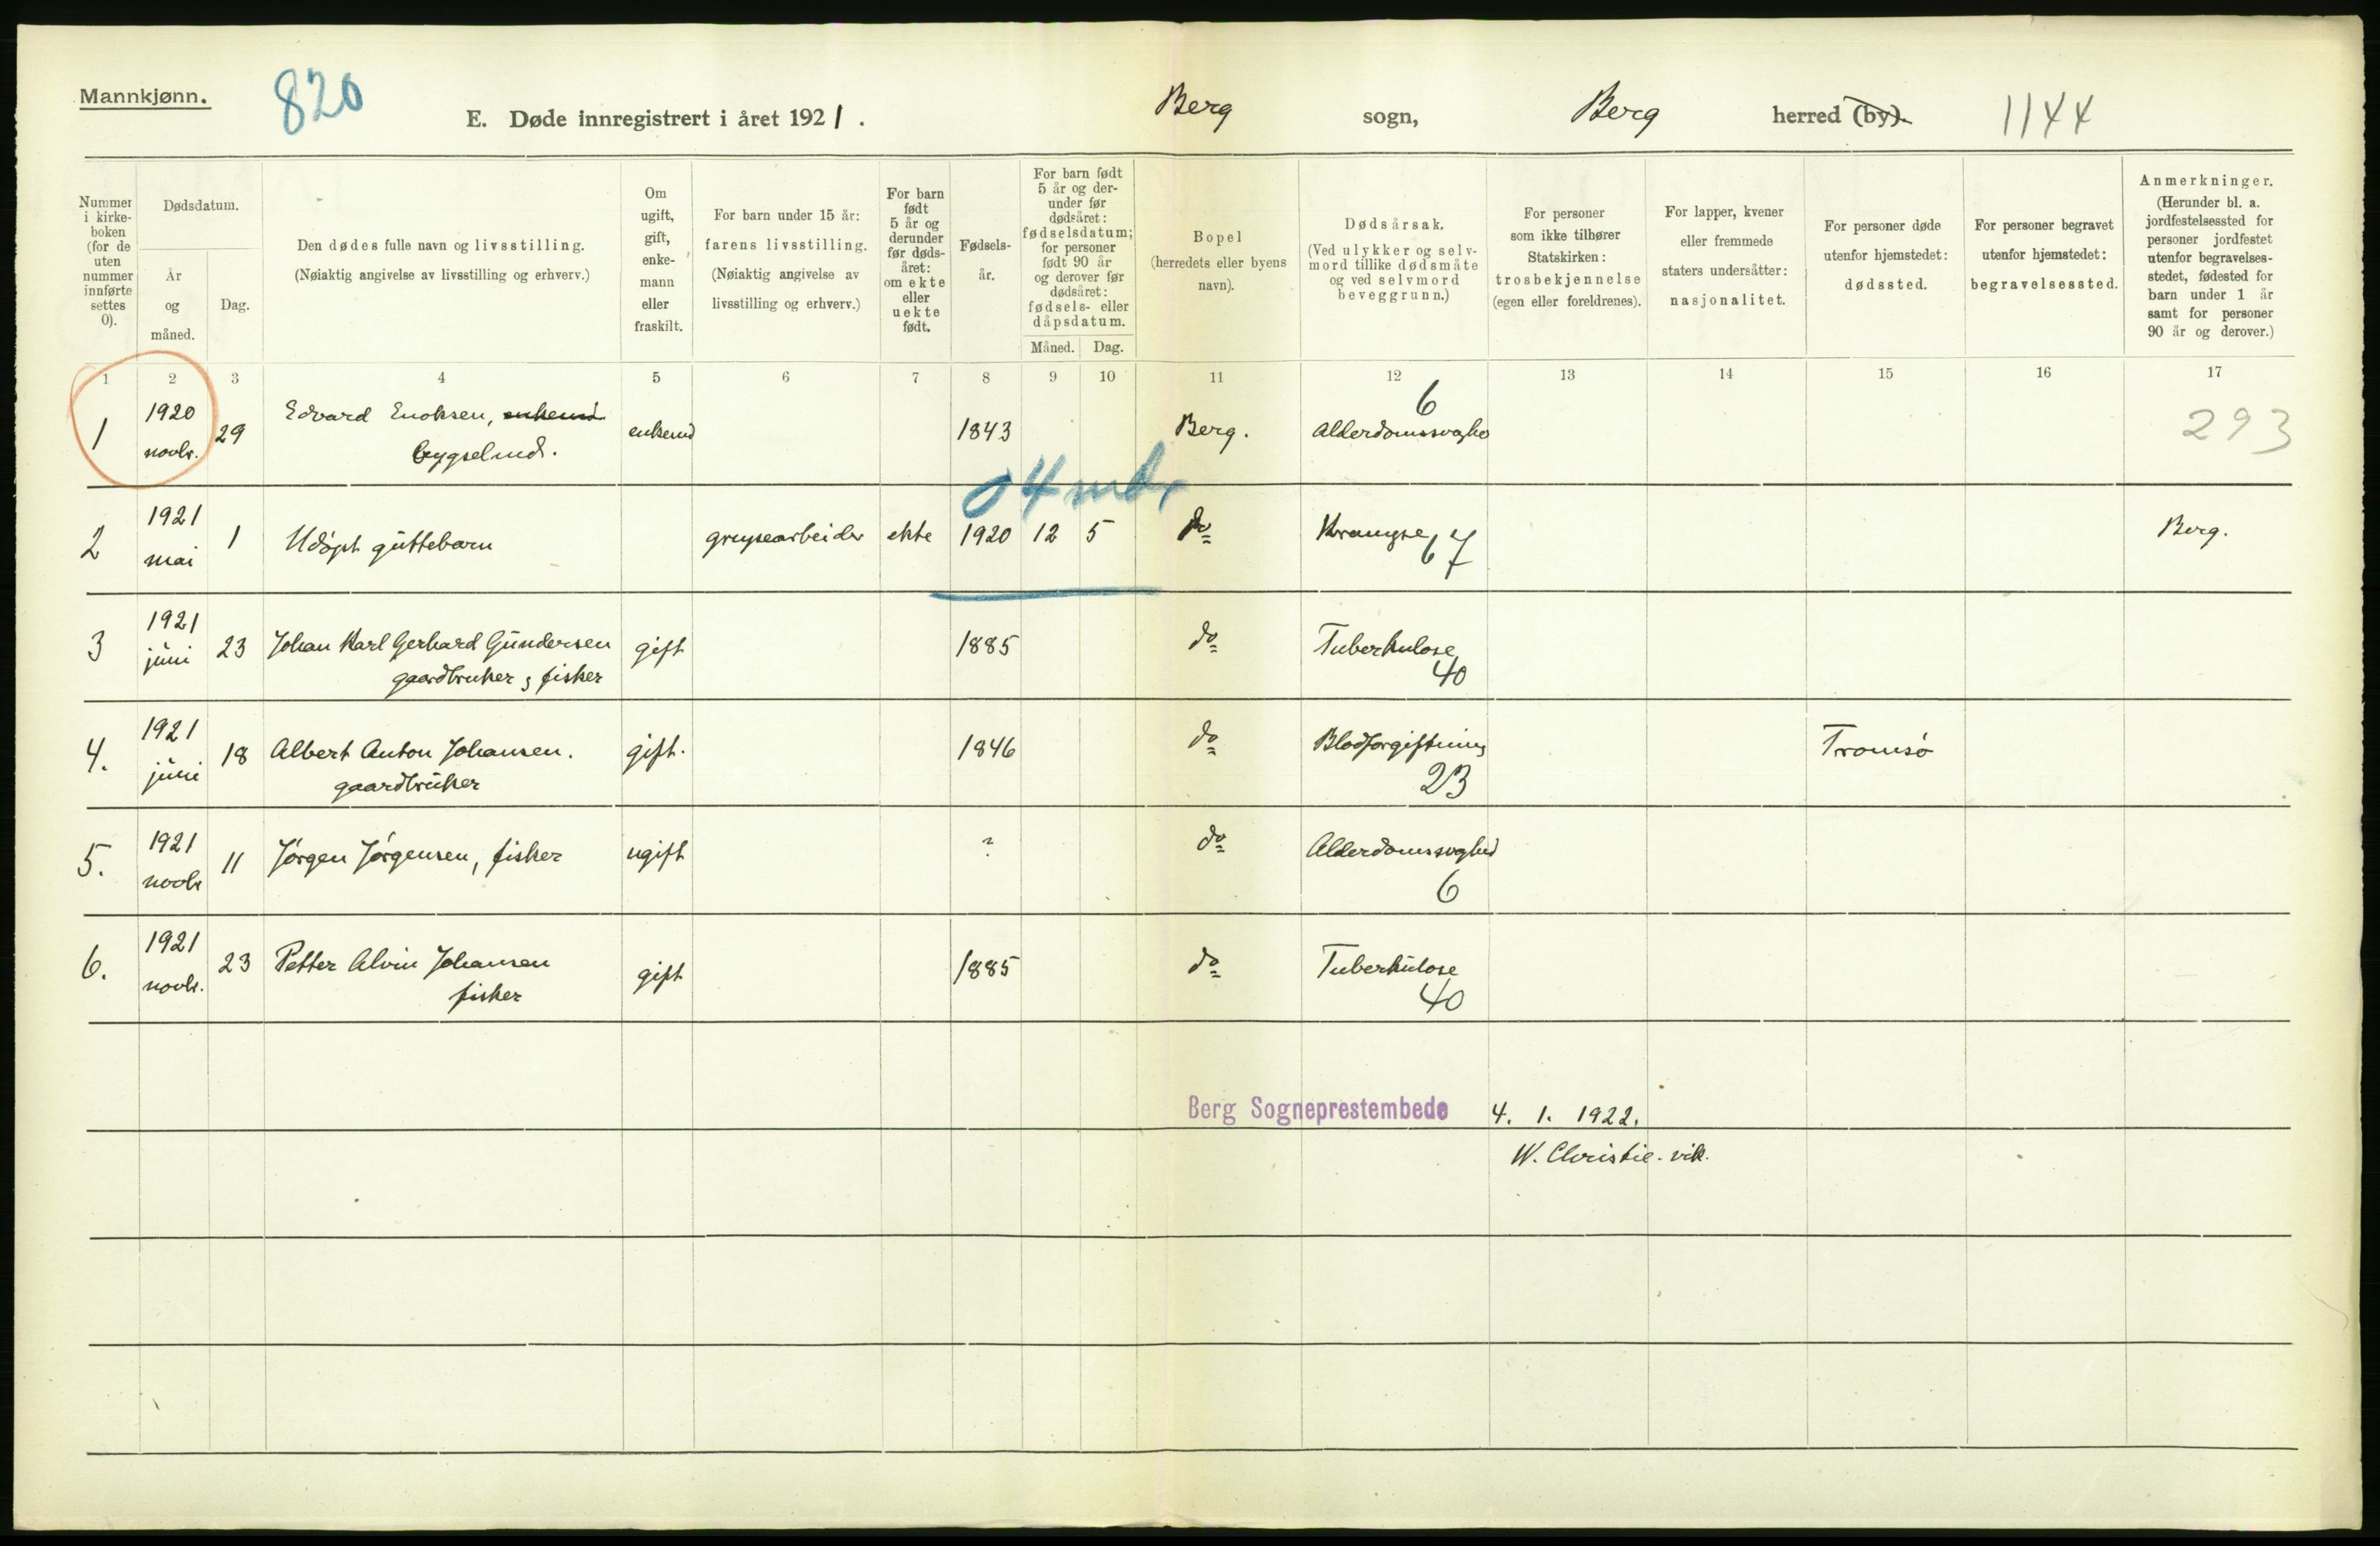 Mannkjønn.
820
E. Døde innregistrert i året 1921.
Berg sogn, Berg herred (by).
1144
Nummer i kirkeboken (for de uten nummer innførte settes 0).
Dødsdatum.
År og måned.
Dag.
Den dødes fulle navn og livsstilling.
(Nøiaktig angivelse av livsstilling og erhverv.)
Om ugift, gift, enkemann eller fraskilt.
For barn under 15 år: farens livsstilling.
(Nøiaktig angivelse av livsstilling og erhverv.)
For barn født 5 år og derunder før dødsåret: om ekte eller uekte født.
Fødselsår.
For barn født 5 år og derunder før dødsåret: fødselsdatum; for personer født 90 år og derover før dødsåret: fødsels- eller dåpsdatum.
Måned. Dag.
Bopel
(herredets eller byens navn).
Dødsårsak.
(Ved ulykker og selvmord tillike dødsmåte og ved selvmord beveggrunn.)
For personer som ikke tilhører Statskirken: trosbekjennelse (egen eller foreldrenes).
For lapper, kvener eller fremmede staters undersåtter: nasjonalitet.
For personer døde utenfor hjemstedet: dødssted.
For personer begravet utenfor hjemstedet: begravelsessted.
Anmerkninger.
(Herunder bl. a. jordfestelsessted for personer jordfestet utenfor begravelsesstedet, fødested for barn under 1 år samt for personer 90 år og derover.)
1 2 3 4 5 6 7 8 9 10 11 12 13 14 15 16 17
1 1920 novbr. 29 Edvard Enoksen, enkemd bygselmd. enkemd 1843 Berg. Alderdomssvaghe 6 293
0 4 mdr
2 1921 mai 1 Udøpt guttebarn grusearbeider ekte 1920 12 5 do Krampe 67 Berg.
3 1921 juni 23 Johan Karl Gerhard Gundersen gaardbruker & fisker gift 1885 do Tuberkulose 40
4. 1921 juni 18 Albert Anton Johansen. gaardbruker gift. 1846 do Blodforgiftning 23 Tromsø
5. 1921 novbr 11 Jørgen Jørgensen, fisker ugift ? do Alderdomssvaghed 6
6. 1921 novbr. 23 Petter Alvin Johansen fisker gift 1885 do Tuberkulose 40
Berg Sogneprestembede 4. 1. 1922.
W. Christie. vik.